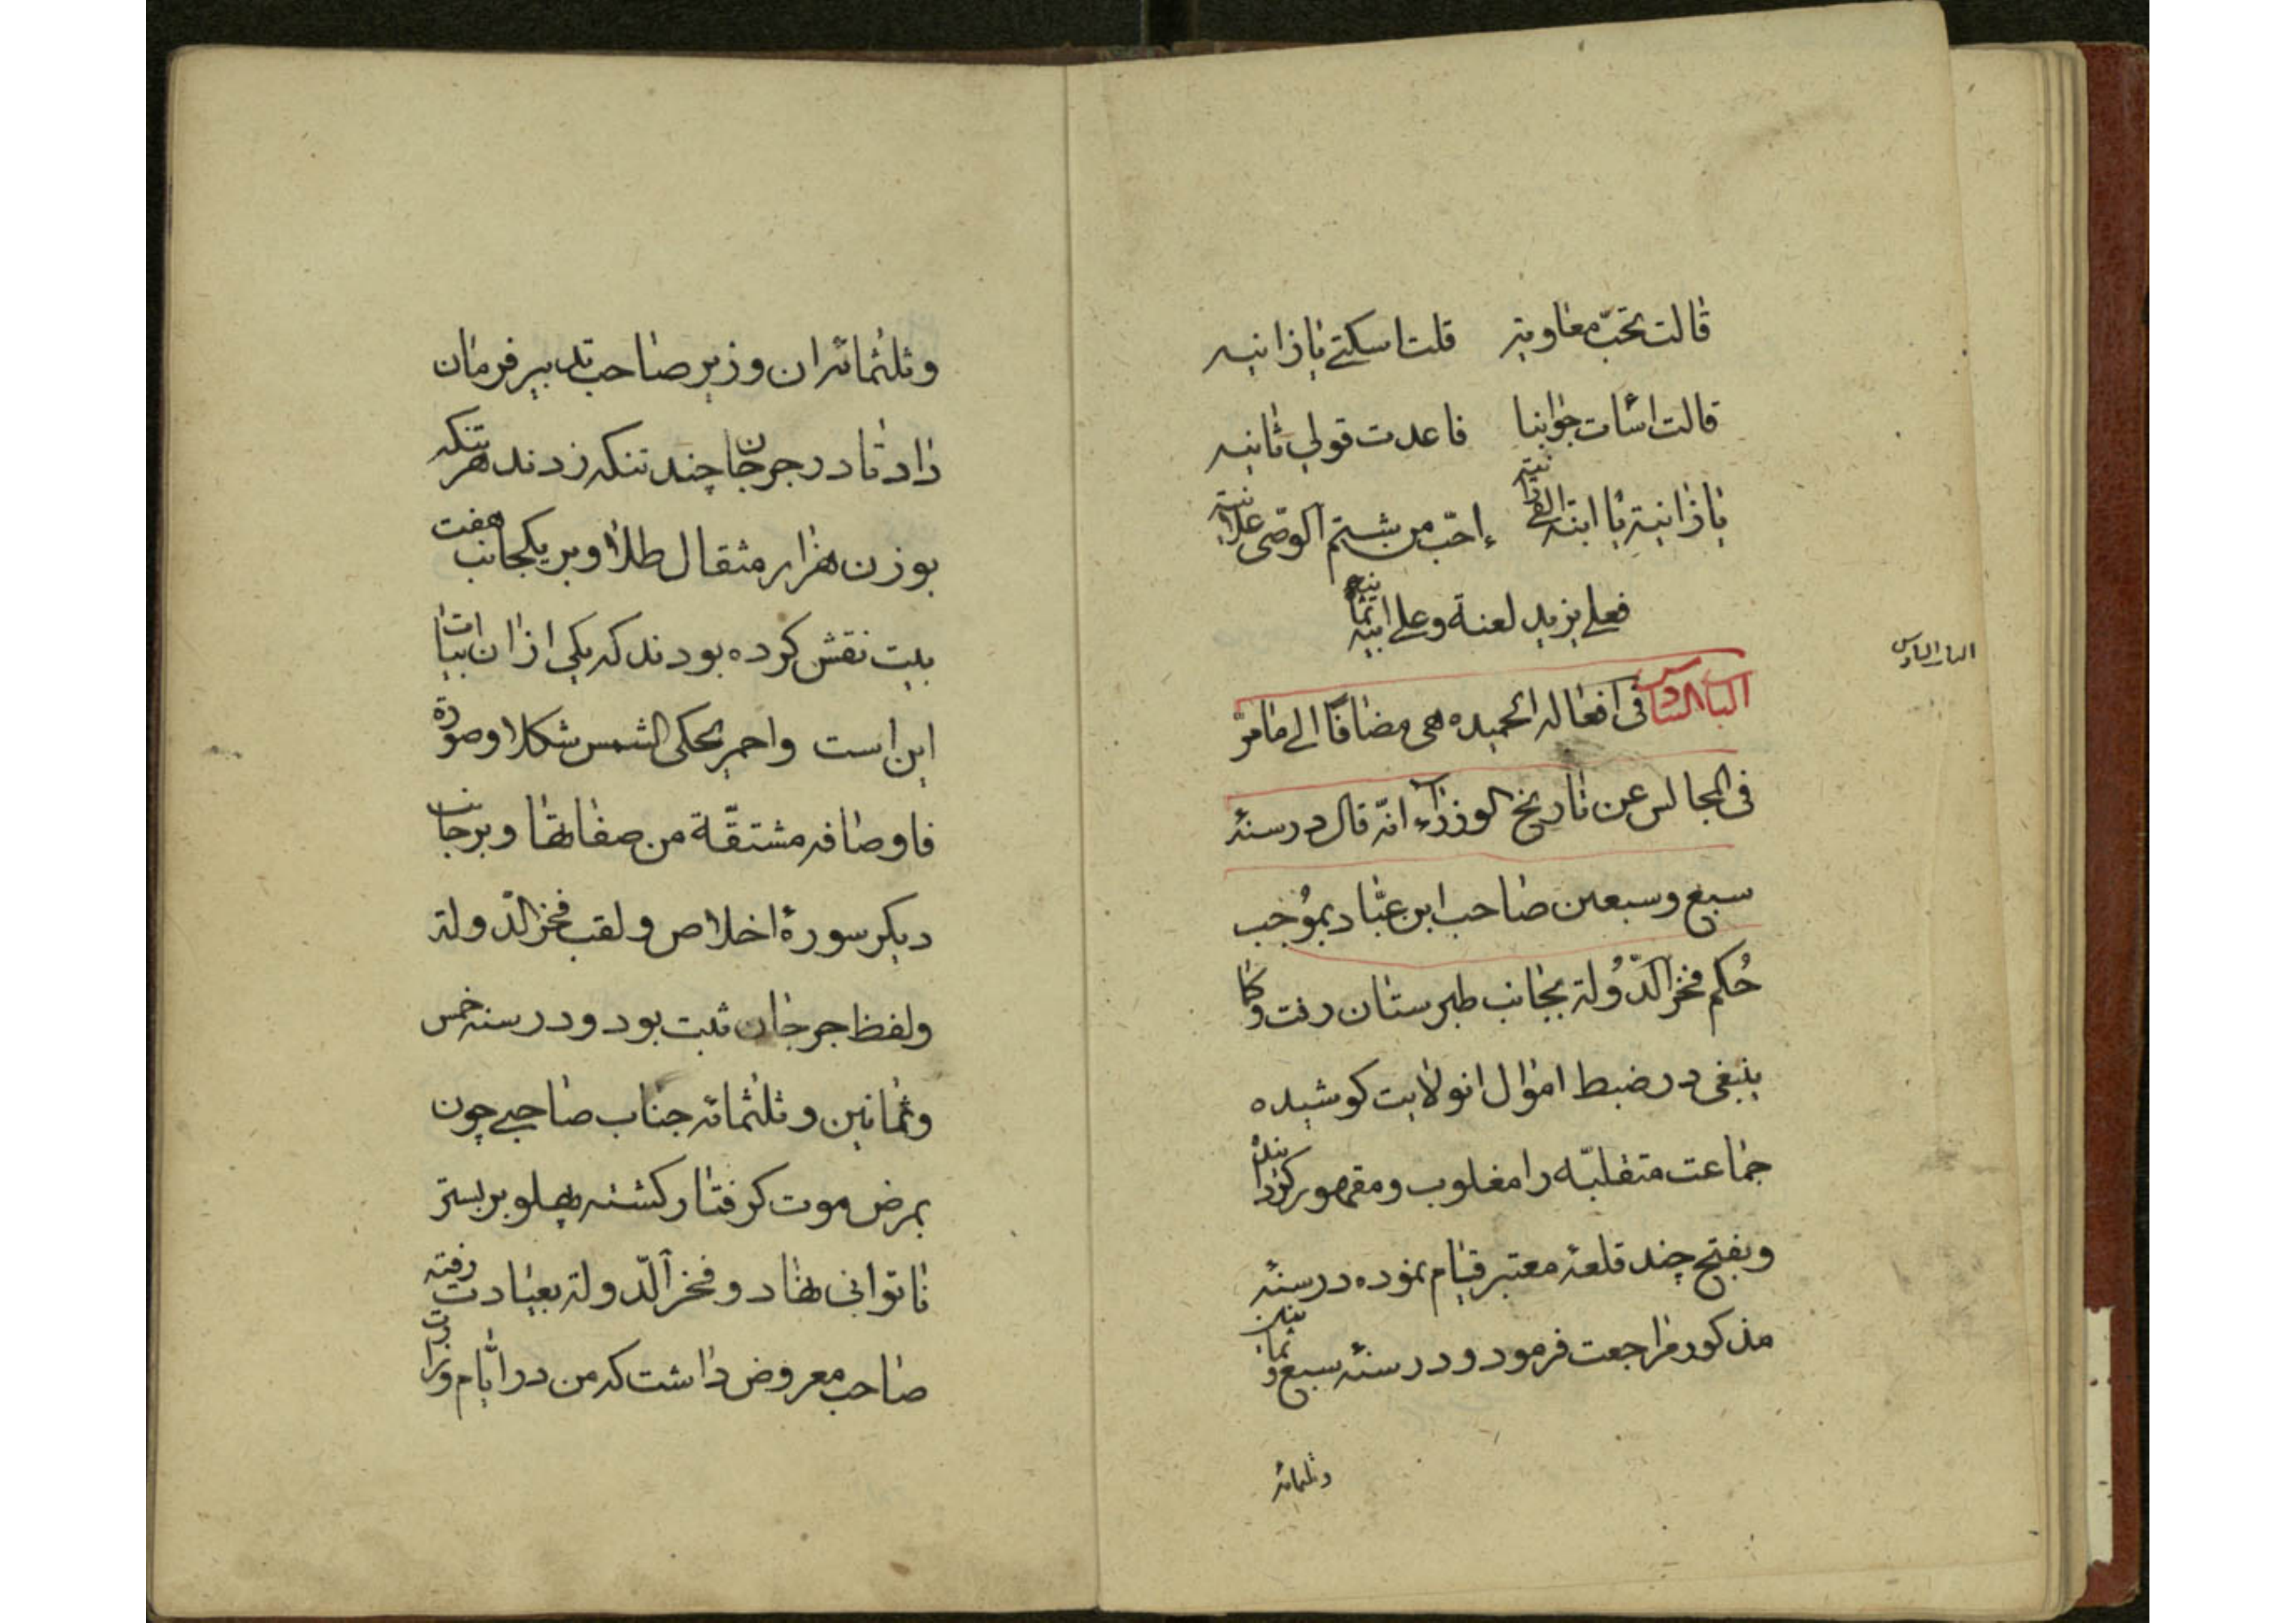 قالت تحبّ معاوية قلت اسكتي يا زانيه
قالت اسأت جوابنا فاعدت قولي ثانيه
يا زانية يا ابنة الف زانية ءاحبّ من شتم الوصّى علانية
فعلى يزيد لعنة وعلى ابيه ثمانيه
الباب السادس
الباب السادس فى افعاله الحميده هى مضافًا الى ما مرّ
فى المجالس عن تاريخ الوزراء انّه قال در سنهٔ
سبع وسبعين صاحب ابن عبّاد بموُجب
حُكم فخر الدّوُلة بجانب طبرستان رفت وكما
ينبغى در ضبط اموال انولايت كوشيده
جماعت متغلبّه را مغلوب ومقهور كردانيد
وبفتح چند قلعهٔ معتبر قيام نموده در سنهٔ
مذكور مراجعت فرمود ودر سنهٔ سبع وثمانين
وثلثمائه
وثلثمائه ان وزير صاحب تدبير فرمان
داد تا در جرجان چند تنكه زدند هر تنكه
بوزن هزار مثقال طلا وبر يكجانب هفت
بيت نقش كرده بودند كه يكى از ان ابيات
اين است واحمر يحكى الشمس شكلا وصورة
فاوصافه مشتقّة من صفاتها وبر جانب
ديكر سورهٔ اخلاص ولقب فخر الدّولة
ولفظ جرجان ثبت بود ودر سنه خمس
وثمانين وثلثمائه جناب صاحبى چون
بمرض موت كرفتار كشته پهلو بر بستر
ناتوانى نهاد وفخر الدّولة بعيادت رفته
صاحب معروض داشت كه من در ايّام وزارت